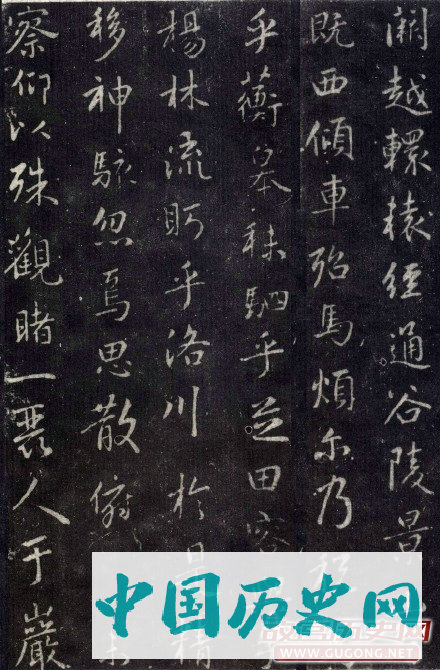 闕越轘轅經通谷陵景
既西傾車殆馬煩尓乃
乎蘅皋秣駟乎芝田容
楊林流眄乎洛川於是精
移神駭忽焉思散俯未
察仰以殊觀睹一麗人于巖
中国历史网
WWW.GUGONG.NET